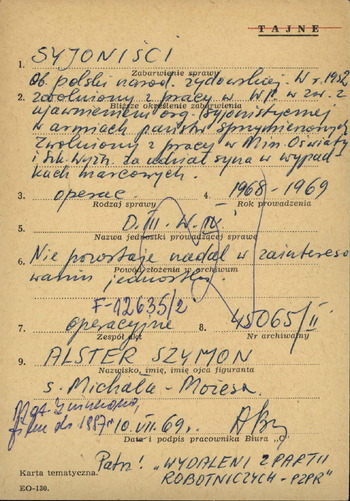 TAJNE
1. SYJONIŚCI
Zabarwienie sprawy
Ob. polski narod. żydowskiej. W r. 1952
zwolniony z pracy w W.P. w zw. z
Bliższe określenie zabarwienia
ujawnieniem org. syjonistycznej
w armiach państw sprzymierzonych
Zwolniony z pracy w Min. Oświaty
i Szk. Wyższ. za udział syna w wypad
kach marcowych.
3. operac. 4. 1968-1969
Rodzaj sprawy Rok prowadzenia
5. D. III. W. IX
Nazwa jednostki prowadzącej sprawę
6. Nie pozostaje nadal w zaintereso
Powód złożenia w archiwum
waniu jednostki.
F-12635/2
7. operacyjne 8. 45065/II
Zespół akt Nr archiwalny
9. ALSTER SZYMON
Nazwisko, imię, imię ojca figuranta
s. Michała - Mojżesza
10. VII. 69r.
Data i podpis pracownika Biura „C"
Patrz! „WYDALENI Z PARTII
Karta tematyczna. ROBOTNICZYCH - PZPR"
EO-130.